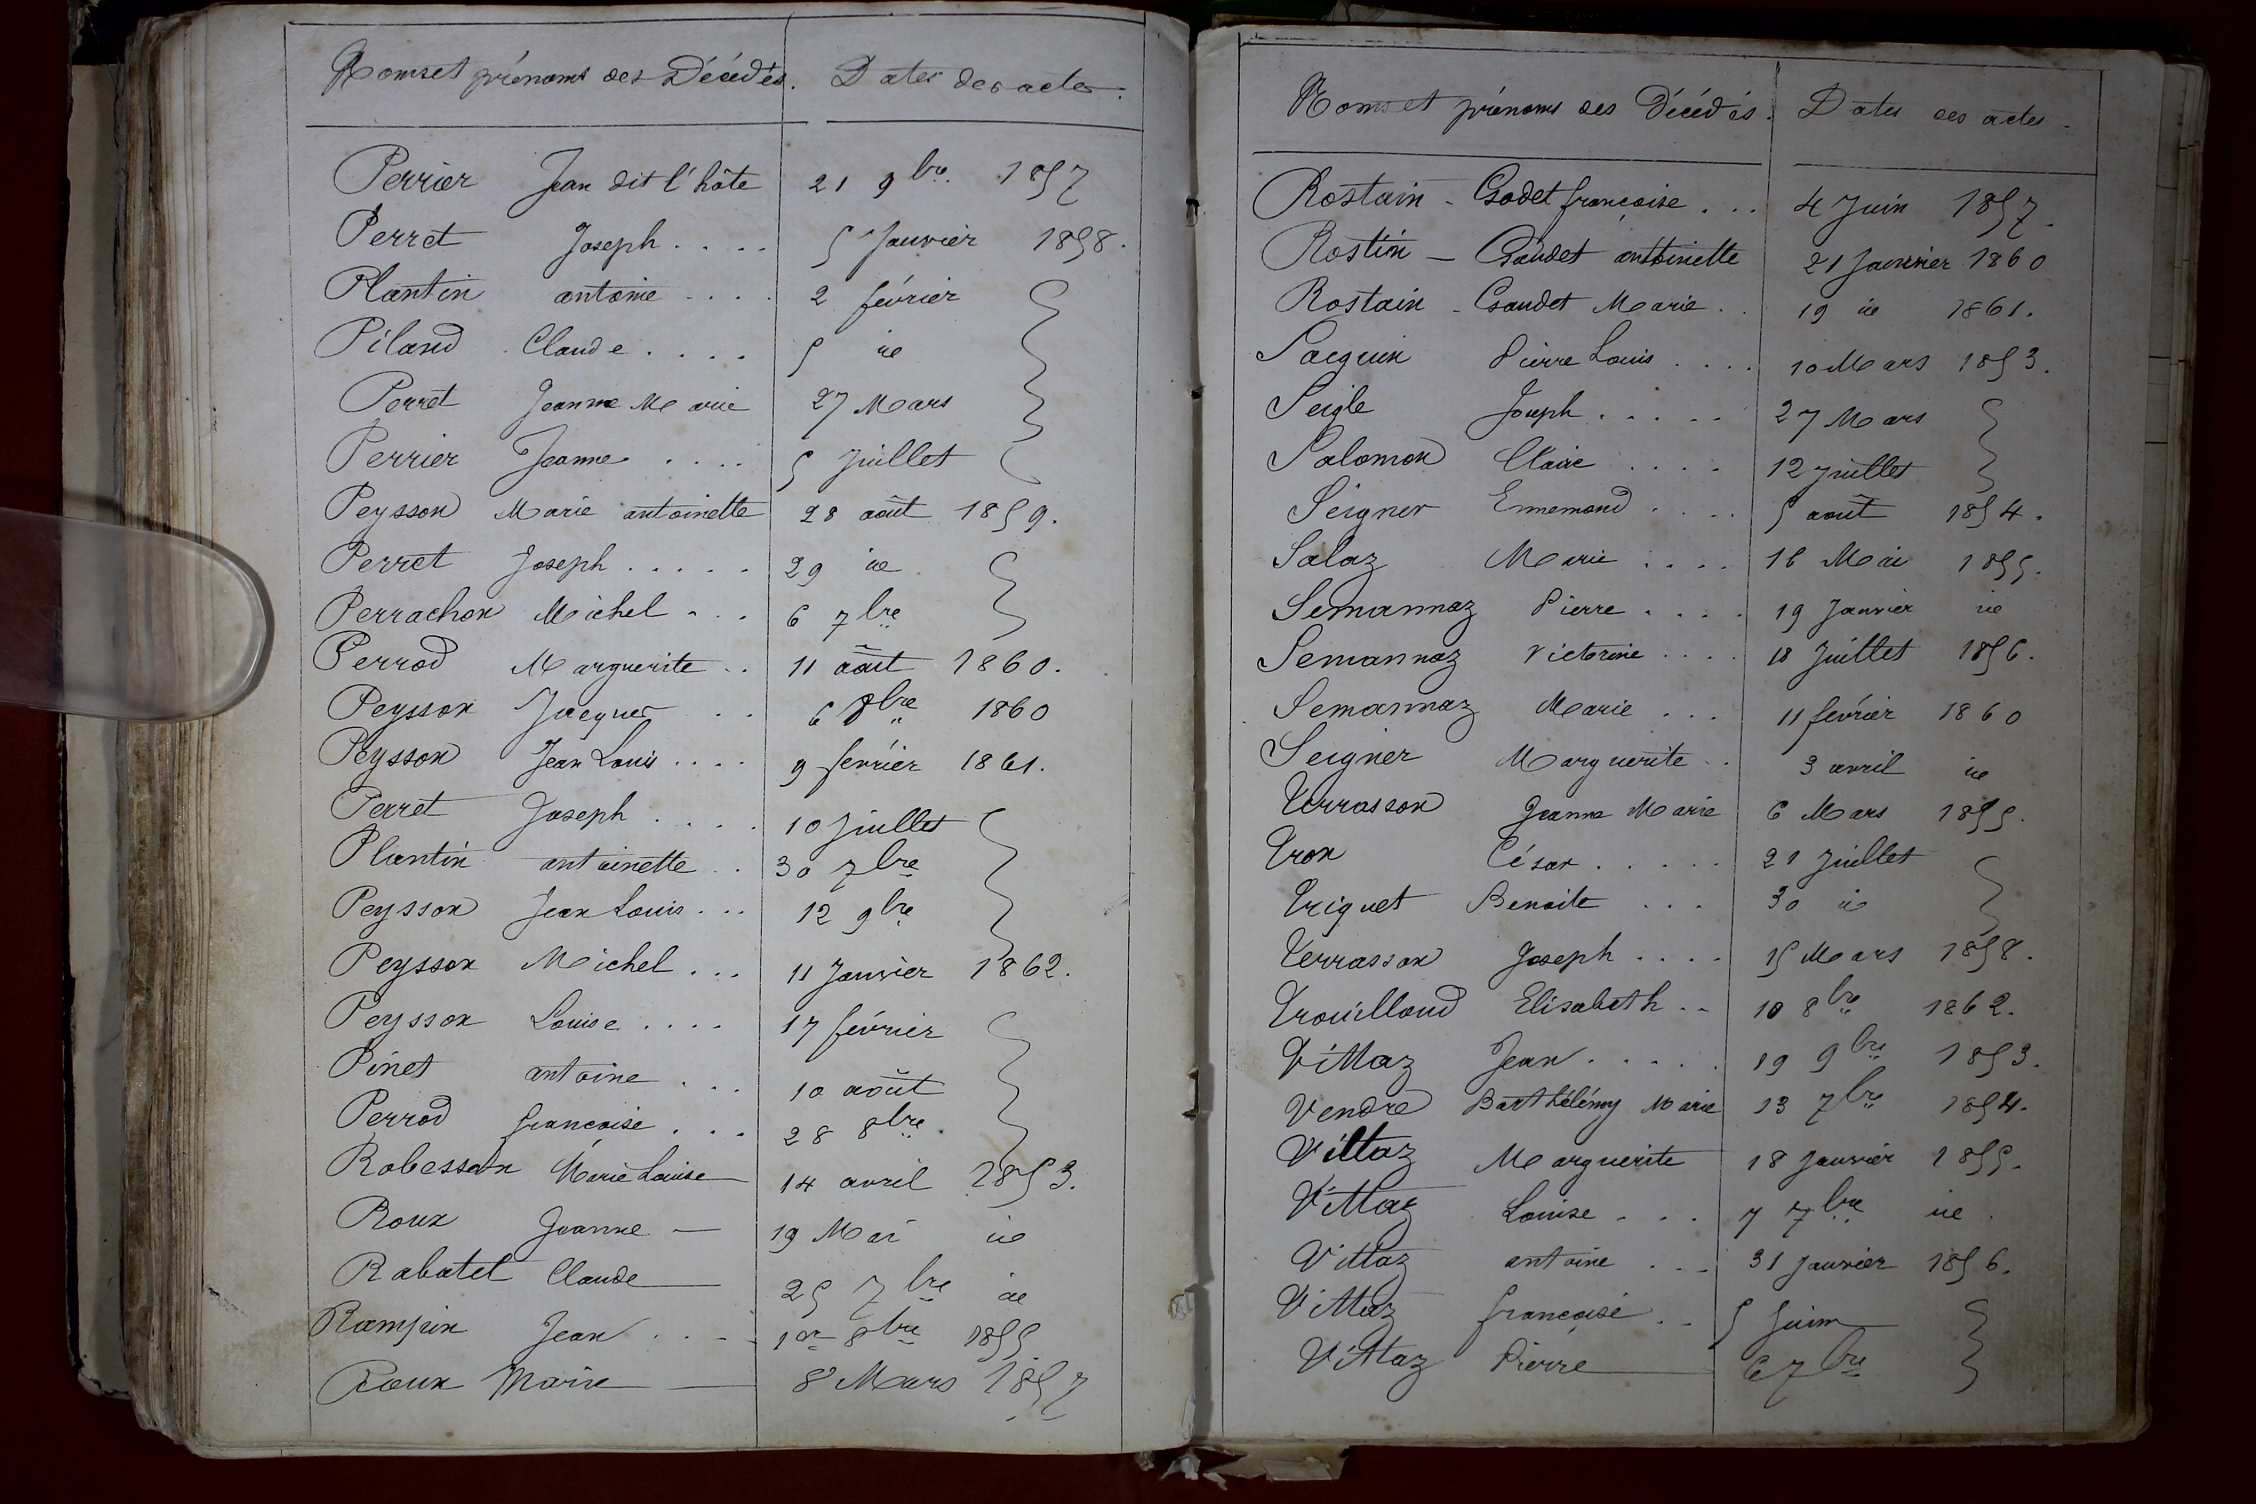 Noms et prénoms des Décédés. Dates des actes.
Perrier Jean dit l'hôte 21 9bre 1857
Perret Joseph .... 5 Janvier 1858.
Plantin antoine .... 2 février
Pilaud Claude .... 5 id
Perret Jeanne Marie 27 Mars
Perrier Jeanne .... 5 Juillet
Peysson Marie antoinette 28 août 1859.
Perret Joseph ..... 29 id
Perrachon Michel ... 6 7bre
Perrod Marguerite .. 11 août 1860.
Peysson Jacques .. 6 8bre 1860
Peysson Jean Louis .... 9 février 1861.
Perret Joseph .... 10 Juillet
Plantin antoinette .. 30 7bre
Peysson Jean Louis ... 12 9bre
Peysson Michel ... 11 Janvier 1862.
Peysson Louise .... 17 février
Pinet antoine ... 10 août
Perrod françoise ... 28 8bre.
Robesson Marie Louise 14 avril 1853.
Roux Jeanne — 19 Mai id
Rabatel Claude — 25 7bre id
Rampin Jean .... 1er 8bre 1855
Roux Marie — 8 Mars 1857
Noms et prénoms des Décédés. Dates des actes.
Rostain - Godet françoise ... 4 Juin 1857.
Rostin — Gaudet antoinette 21 Janvier 1860
Rostain - Gaudet Marie .. 19 id 1861.
Sacquin Pierre Louis .... 10 Mars 1853.
Seigle Joseph ..... 27 Mars
Salomon Claire .... 12 Juillet
Seigner Ennemond .... 5 août 1854.
Salaz Marie .... 16 Mai 1855.
Semannaz Pierre .... 19 Janvier id
Semannaz Victorine .... 18 Juillet 1856.
Semannaz Marie ... 11 février 1860
Seigner Marguerite .. 3 avril id
Terrasson Jeanne Marie 6 Mars 1855.
Tron César ..... 21 Juillet
Triquet Benoite ... 30 id
Terrasson Joseph .... 15 Mars 1858.
Trouilloud Elisabeth .. 10 8bre 1862.
Vittaz Jean ..... 19 9bre 1853.
Vendre Barthélémy Marie 13 7bre 1854.
Vittaz Marguerite 18 Janvier 1855.
Vittaz Louise ... 7 7bre id.
Vittaz antoine ... 31 Janvier 1856.
Vittaz françoise .. 5 Juin
Vittaz Pierre — 6 7bre